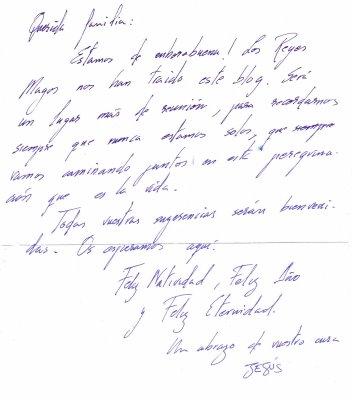 Querida familia:
Estamos de enhorabuena! Los Reyes
Magos nos han traido este blog. Será
un lugar más de reunión, para recordarnos
siempre que nunca estamos solos, que siempre
vamos caminando juntos en este peregrina-
ción que es la vida.
Todas vuestras sugerencias serán bienveni-
das. Os esperamos aquí.
Feliz Natividad, Feliz Año
y Feliz Eternidad.
Un abrazo de vuestro cura
JESÚS